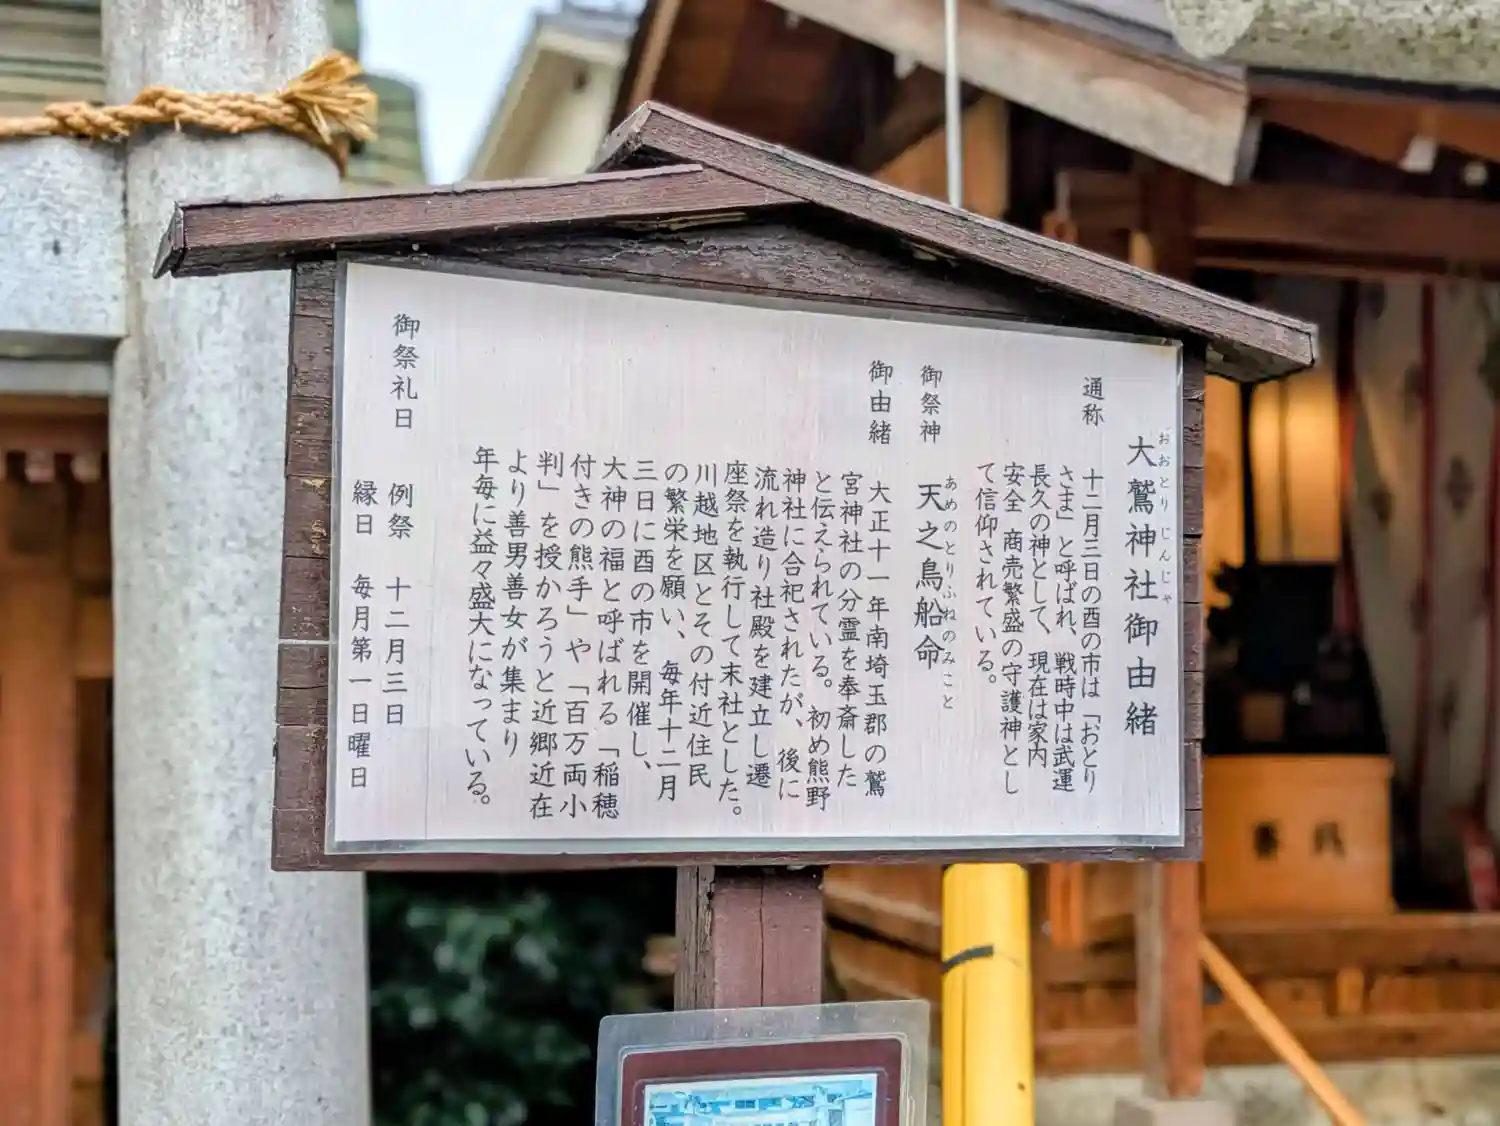 大鷲神社御由緒
おおとりじんじゃ
通称 十二月三日の酉の市は「おとり
さま」と呼ばれ、戦時中は武運
長久の神として、現在は家内
安全 商売繁盛の守護神とし
て信仰されている。
御祭神 天之鳥船命
あめのとりふねのみこと
御由緒 大正十一年南埼玉郡の鷲
宮神社の分霊を奉斎した
と伝えられている。初め熊野
神社に合祀されたが、後に
流れ造り社殿を建立し遷
座祭を執行して末社とした。
川越地区とその付近住民
の繁栄を願い、毎年十二月
三日に酉の市を開催し、
大神の福と呼ばれる「稲穂
付きの熊手」や「百万両小
判」を授かろうと近郷近在
より善男善女が集まり
年毎に益々盛大になっている。
御祭礼日 例祭 十二月三日
縁日 毎月第一日曜日